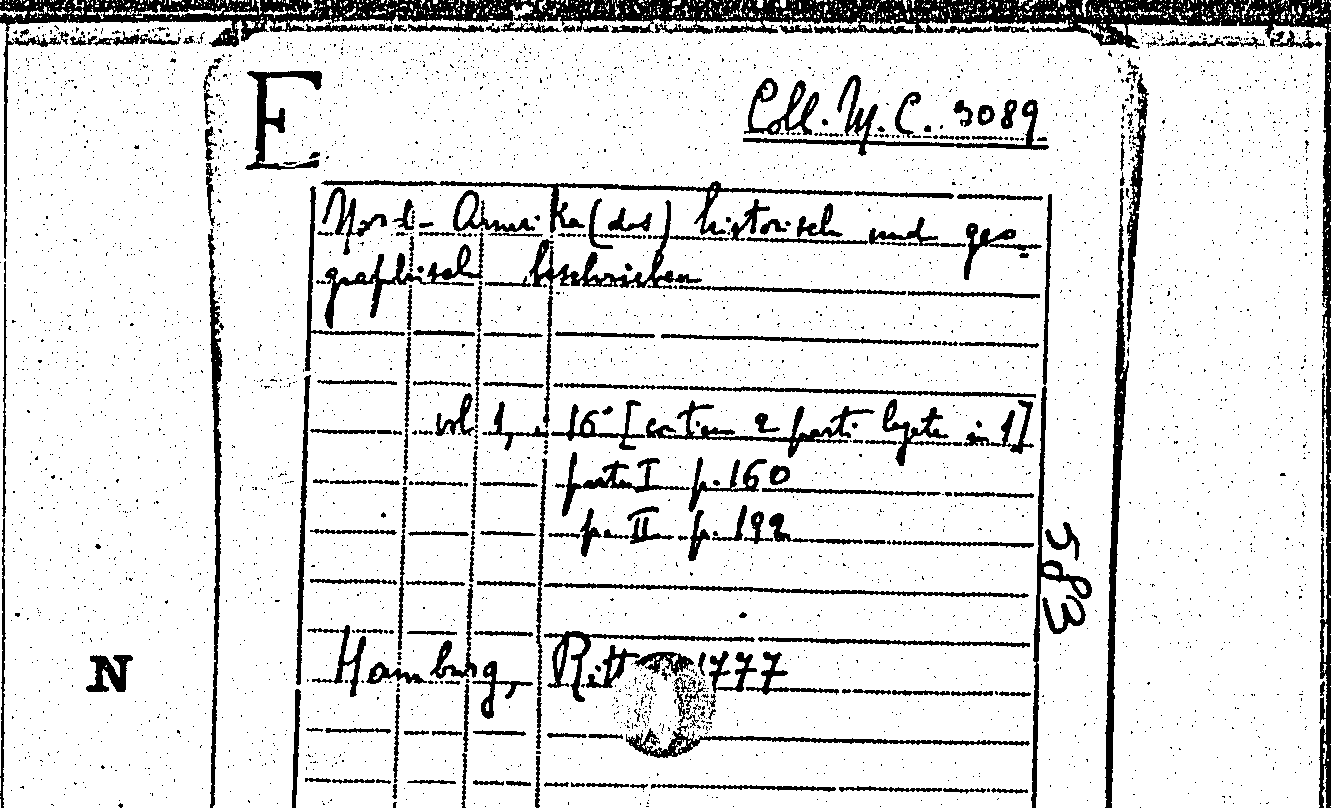 E
Coll. M. C. 3089
Nord-Amerika (das) historisch und geo-
graphisch beschrieben
vol 1, 16° [contien 2 parti legate in 1]
parte I p. 160
p. II p. 192
583
Hamburg, 1777
N